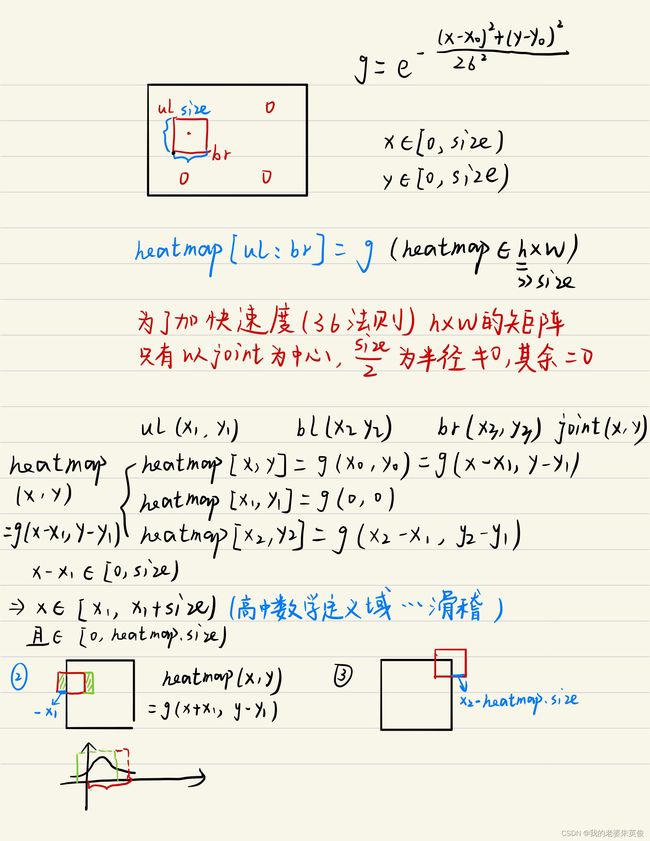 g = e^-((x-x₀)²+(y-y₀)²)/(2σ²)
ul size 0
br
0 0
x∈[0, size)
y∈[0, size)
heatmap[ul:br] = g (heatmap ∈ h×w)
>>size
为了加快速度(3σ法则) h×w的矩阵
只有以joint为中心, size/2 为半径≠0,其余=0
ul(x₁, y₁) bl(x₂ y₂) br(x₃, y₃) joint(x,y)
heatmap(x,y) =g(x-x₁, y-y₁)
heatmap[x,y] = g(x₀,y₀) = g(x-x₁, y-y₁)
heatmap[x₁,y₁] = g(0,0)
heatmap[x₂,y₂] = g(x₂-x₁, y₂-y₁)
x-x₁∈[0,size)
⇒ x∈[x₁, x₁+size) (高中数学定义域…滑稽)
且∈[0, heatmap.size)
② heatmap(x,y)
=g(x+x₁, y-y₁)
-x₁
③
x₂-heatmap.size
CSDN @我的老婆朱英俊